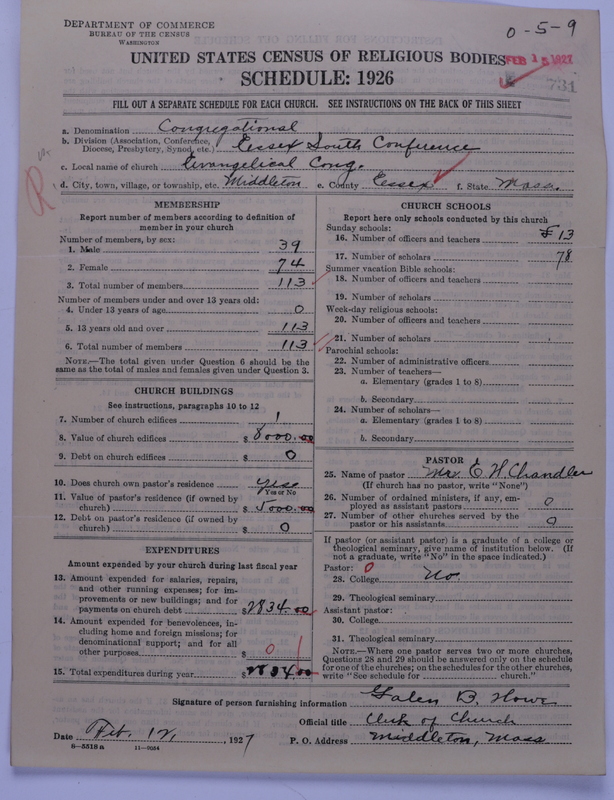 DEPARTMENT OF COMMERCE
BUREAU OF THE CENSUS
WASHINGTON
0-5-9
UNITED STATES CENSUS OF RELIGIOUS BODIES
FEB 15 1927
SCHEDULE: 1926
731
FILL OUT A SEPARATE SCHEDULE FOR EACH CHURCH. SEE INSTRUCTIONS ON THE BACK OF THIS SHEET
a. Denomination Congregational
b. Division (Association, Conference, Diocese, Presbytery, Synod, etc.) Essex South Conference
c. Local name of church Evangelical Cong.
R
d. City, town, village, or township, etc. Middleton e. County Essex f. State Mass.
MEMBERSHIP
Report number of members according to definition of member in your church
Number of members, by sex:
1. Male 39
2. Female 74
3. Total number of members 113
Number of members under and over 13 years old:
4. Under 13 years of age 0
5. 13 years old and over 113
6. Total number of members 113
NOTE.—The total given under Question 6 should be the
same as the total of males and females given under Question 3.
CHURCH BUILDINGS
See instructions, paragraphs 10 to 12
7. Number of church edifices 1
8. Value of church edifices $8000.00
9. Debt on church edifices $ 0
10. Does church own pastor's residence? Yes
Yes or No
11. Value of pastor's residence (if owned by
church) $5000.00
12. Debt on pastor's residence (if owned by
church) $ 0
EXPENDITURES
Amount expended by your church during last fiscal year
13. Amount expended for salaries, repairs,
and other running expenses; for im-
provements or new buildings; and for
payments on church debt $2834.00
14. Amount expended for benevolences, in-
cluding home and foreign missions; for
denominational support; and for all
other purposes $ 0
15. Total expenditures during year $2834.00
CHURCH SCHOOLS
Report here only schools conducted by this church
Sunday schools:
16. Number of officers and teachers 13
17. Number of scholars 78
Summer vacation Bible schools:
18. Number of officers and teachers
19. Number of scholars
Week-day religious schools:
20. Number of officers and teachers
21. Number of scholars
Parochial schools:
22. Number of administrative officers
23. Number of teachers—
a. Elementary (grades 1 to 8)
b. Secondary
24. Number of scholars—
a. Elementary (grades 1 to 8)
b. Secondary
PASTOR
25. Name of pastor Mr. E. H. Chandler
(If church has no pastor, write "None")
26. Number of ordained ministers, if any, em-
ployed as assistant pastors 0
27. Number of other churches served by the
pastor or his assistants 0
If pastor (or assistant pastor) is a graduate of a college or
theological seminary, give name of institution below. (If
not a graduate, write "No" in the space indicated.)
Pastor: 0
28. College No.
29. Theological seminary
Assistant pastor:
30. College
31. Theological seminary
NOTE.—Where one pastor serves two or more churches,
Questions 28 and 29 should be answered only on the schedule
for one of the churches; on the schedules for the other churches,
write "See schedule for church."
Signature of person furnishing information Galen B. Howe
Official title Clerk of Church
Date Feb. 12, 1927 P. O. Address Middleton, Mass
8-5518 a 11-9054